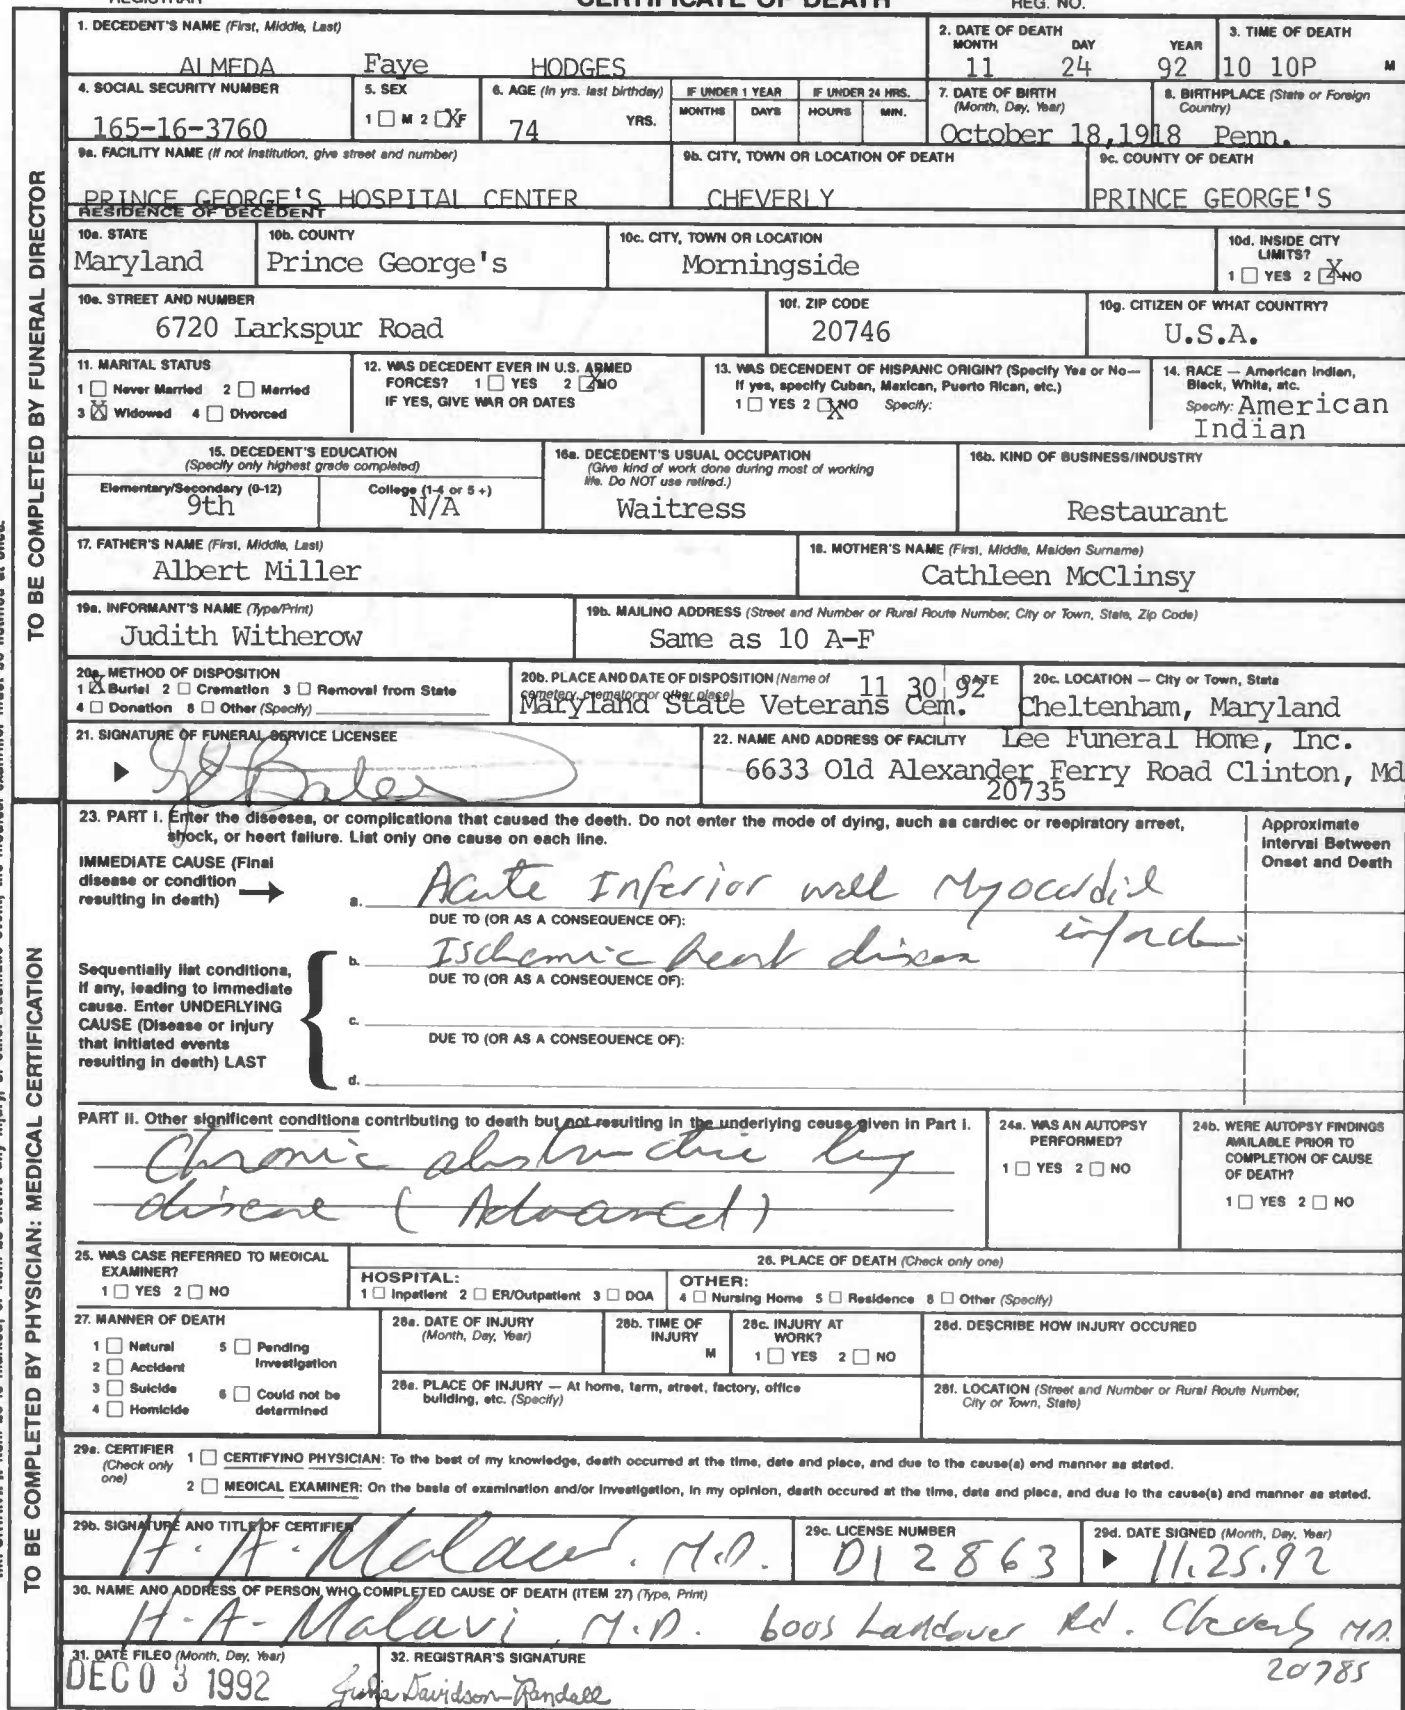 CERTIFICATE OF DEATH
REGISTRAR
REG. NO.
TO BE COMPLETED BY FUNERAL DIRECTOR
1. DECEDENT'S NAME (First, Middle, Last)
ALMEDA Faye HODGES
2. DATE OF DEATH
MONTH DAY YEAR
11 24 92
3. TIME OF DEATH
10 10P M
4. SOCIAL SECURITY NUMBER
165-16-3760
5. SEX
1 M 2 X F
6. AGE (In yrs. last birthday)
74 YRS.
IF UNDER 1 YEAR
MONTHS DAYS
IF UNDER 24 HRS.
HOURS MIN.
7. DATE OF BIRTH
(Month, Day, Year)
October 18,1918
8. BIRTHPLACE (State or Foreign
Country)
Penn.
9a. FACILITY NAME (If not institution, give street and number)
PRINCE GEORGE'S HOSPITAL CENTER
9b. CITY, TOWN OR LOCATION OF DEATH
CHEVERLY
9c. COUNTY OF DEATH
PRINCE GEORGE'S
RESIDENCE OF DECEDENT
10a. STATE
Maryland
10b. COUNTY
Prince George's
10c. CITY, TOWN OR LOCATION
Morningside
10d. INSIDE CITY
LIMITS?
1 YES 2 X NO
10e. STREET AND NUMBER
6720 Larkspur Road
10f. ZIP CODE
20746
10g. CITIZEN OF WHAT COUNTRY?
U.S.A.
11. MARITAL STATUS
1 Never Married 2 Married
3 X Widowed 4 Divorced
12. WAS DECEDENT EVER IN U.S. ARMED
FORCES? 1 YES 2 X NO
IF YES, GIVE WAR OR DATES
13. WAS DECENDENT OF HISPANIC ORIGIN? (Specify Yes or No—
If yes, specify Cuban, Mexican, Puerto Rican, etc.)
1 YES 2 X NO Specify:
14. RACE — American Indian,
Black, White, etc.
Specify: American
Indian
15. DECEDENT'S EDUCATION
(Specify only highest grade completed)
Elementary/Secondary (0-12)
9th
College (1-4 or 5 +)
N/A
16a. DECEDENT'S USUAL OCCUPATION
(Give kind of work done during most of working
life. Do NOT use retired.)
Waitress
16b. KIND OF BUSINESS/INDUSTRY
Restaurant
17. FATHER'S NAME (First, Middle, Last)
Albert Miller
18. MOTHER'S NAME (First, Middle, Maiden Surname)
Cathleen McClinsy
19a. INFORMANT'S NAME (Type/Print)
Judith Witherow
19b. MAILING ADDRESS (Street and Number or Rural Route Number, City or Town, State, Zip Code)
Same as 10 A-F
20a. METHOD OF DISPOSITION
1 X Burial 2 Cremation 3 Removal from State
4 Donation 8 Other (Specify)
20b. PLACE AND DATE OF DISPOSITION (Name of
cemetery, crematory or other place) 11 30 92 DATE
Maryland State Veterans Cem.
20c. LOCATION — City or Town, State
Cheltenham, Maryland
21. SIGNATURE OF FUNERAL SERVICE LICENSEE
22. NAME AND ADDRESS OF FACILITY Lee Funeral Home, Inc.
6633 Old Alexander Ferry Road Clinton, Md
20735
TO BE COMPLETED BY PHYSICIAN: MEDICAL CERTIFICATION
23. PART I. Enter the diseases, or complications that caused the death. Do not enter the mode of dying, such as cardiac or respiratory arrest,
shock, or heart failure. List only one cause on each line.
Approximate
Interval Between
Onset and Death
IMMEDIATE CAUSE (Final
disease or condition
resulting in death)
a. Acute Inferior wall Myocardial
DUE TO (OR AS A CONSEQUENCE OF):
b. Ischemic heart disease
DUE TO (OR AS A CONSEQUENCE OF):
Sequentially list conditions,
if any, leading to immediate
cause. Enter UNDERLYING
CAUSE (Disease or injury
that initiated events
resulting in death) LAST
c.
DUE TO (OR AS A CONSEQUENCE OF):
d.
PART II. Other significant conditions contributing to death but not resulting in the underlying cause given in Part I.
Chronic obstructive lung
disease (Advanced)
24a. WAS AN AUTOPSY
PERFORMED?
1 YES 2 NO
24b. WERE AUTOPSY FINDINGS
AVAILABLE PRIOR TO
COMPLETION OF CAUSE
OF DEATH?
1 YES 2 NO
25. WAS CASE REFERRED TO MEDICAL
EXAMINER?
1 YES 2 NO
26. PLACE OF DEATH (Check only one)
HOSPITAL:
1 Inpatient 2 ER/Outpatient 3 DOA
OTHER:
4 Nursing Home 5 Residence 8 Other (Specify)
27. MANNER OF DEATH
1 Natural 5 Pending
Investigation
2 Accident
3 Suicide 6 Could not be
determined
4 Homicide
28a. DATE OF INJURY
(Month, Day, Year)
28b. TIME OF
INJURY
M
28c. INJURY AT
WORK?
1 YES 2 NO
28d. DESCRIBE HOW INJURY OCCURED
28e. PLACE OF INJURY — At home, farm, street, factory, office
building, etc. (Specify)
28f. LOCATION (Street and Number or Rural Route Number,
City or Town, State)
29a. CERTIFIER
(Check only
one)
1 CERTIFYING PHYSICIAN: To the best of my knowledge, death occurred at the time, date and place, and due to the cause(s) and manner as stated.
2 MEDICAL EXAMINER: On the basis of examination and/or investigation, in my opinion, death occured at the time, date and place, and due to the cause(s) and manner as stated.
29b. SIGNATURE AND TITLE OF CERTIFIER
H. A. Malavi. M.D.
29c. LICENSE NUMBER
D12863
29d. DATE SIGNED (Month, Day, Year)
11.25.92
30. NAME AND ADDRESS OF PERSON WHO COMPLETED CAUSE OF DEATH (ITEM 27) (Type, Print)
H-A-Malavi, M.D. 6005 Landover Rd. Cheverly MD.
20785
31. DATE FILED (Month, Day, Year)
DEC 03 1992
32. REGISTRAR'S SIGNATURE
Julia Davidson-Randall